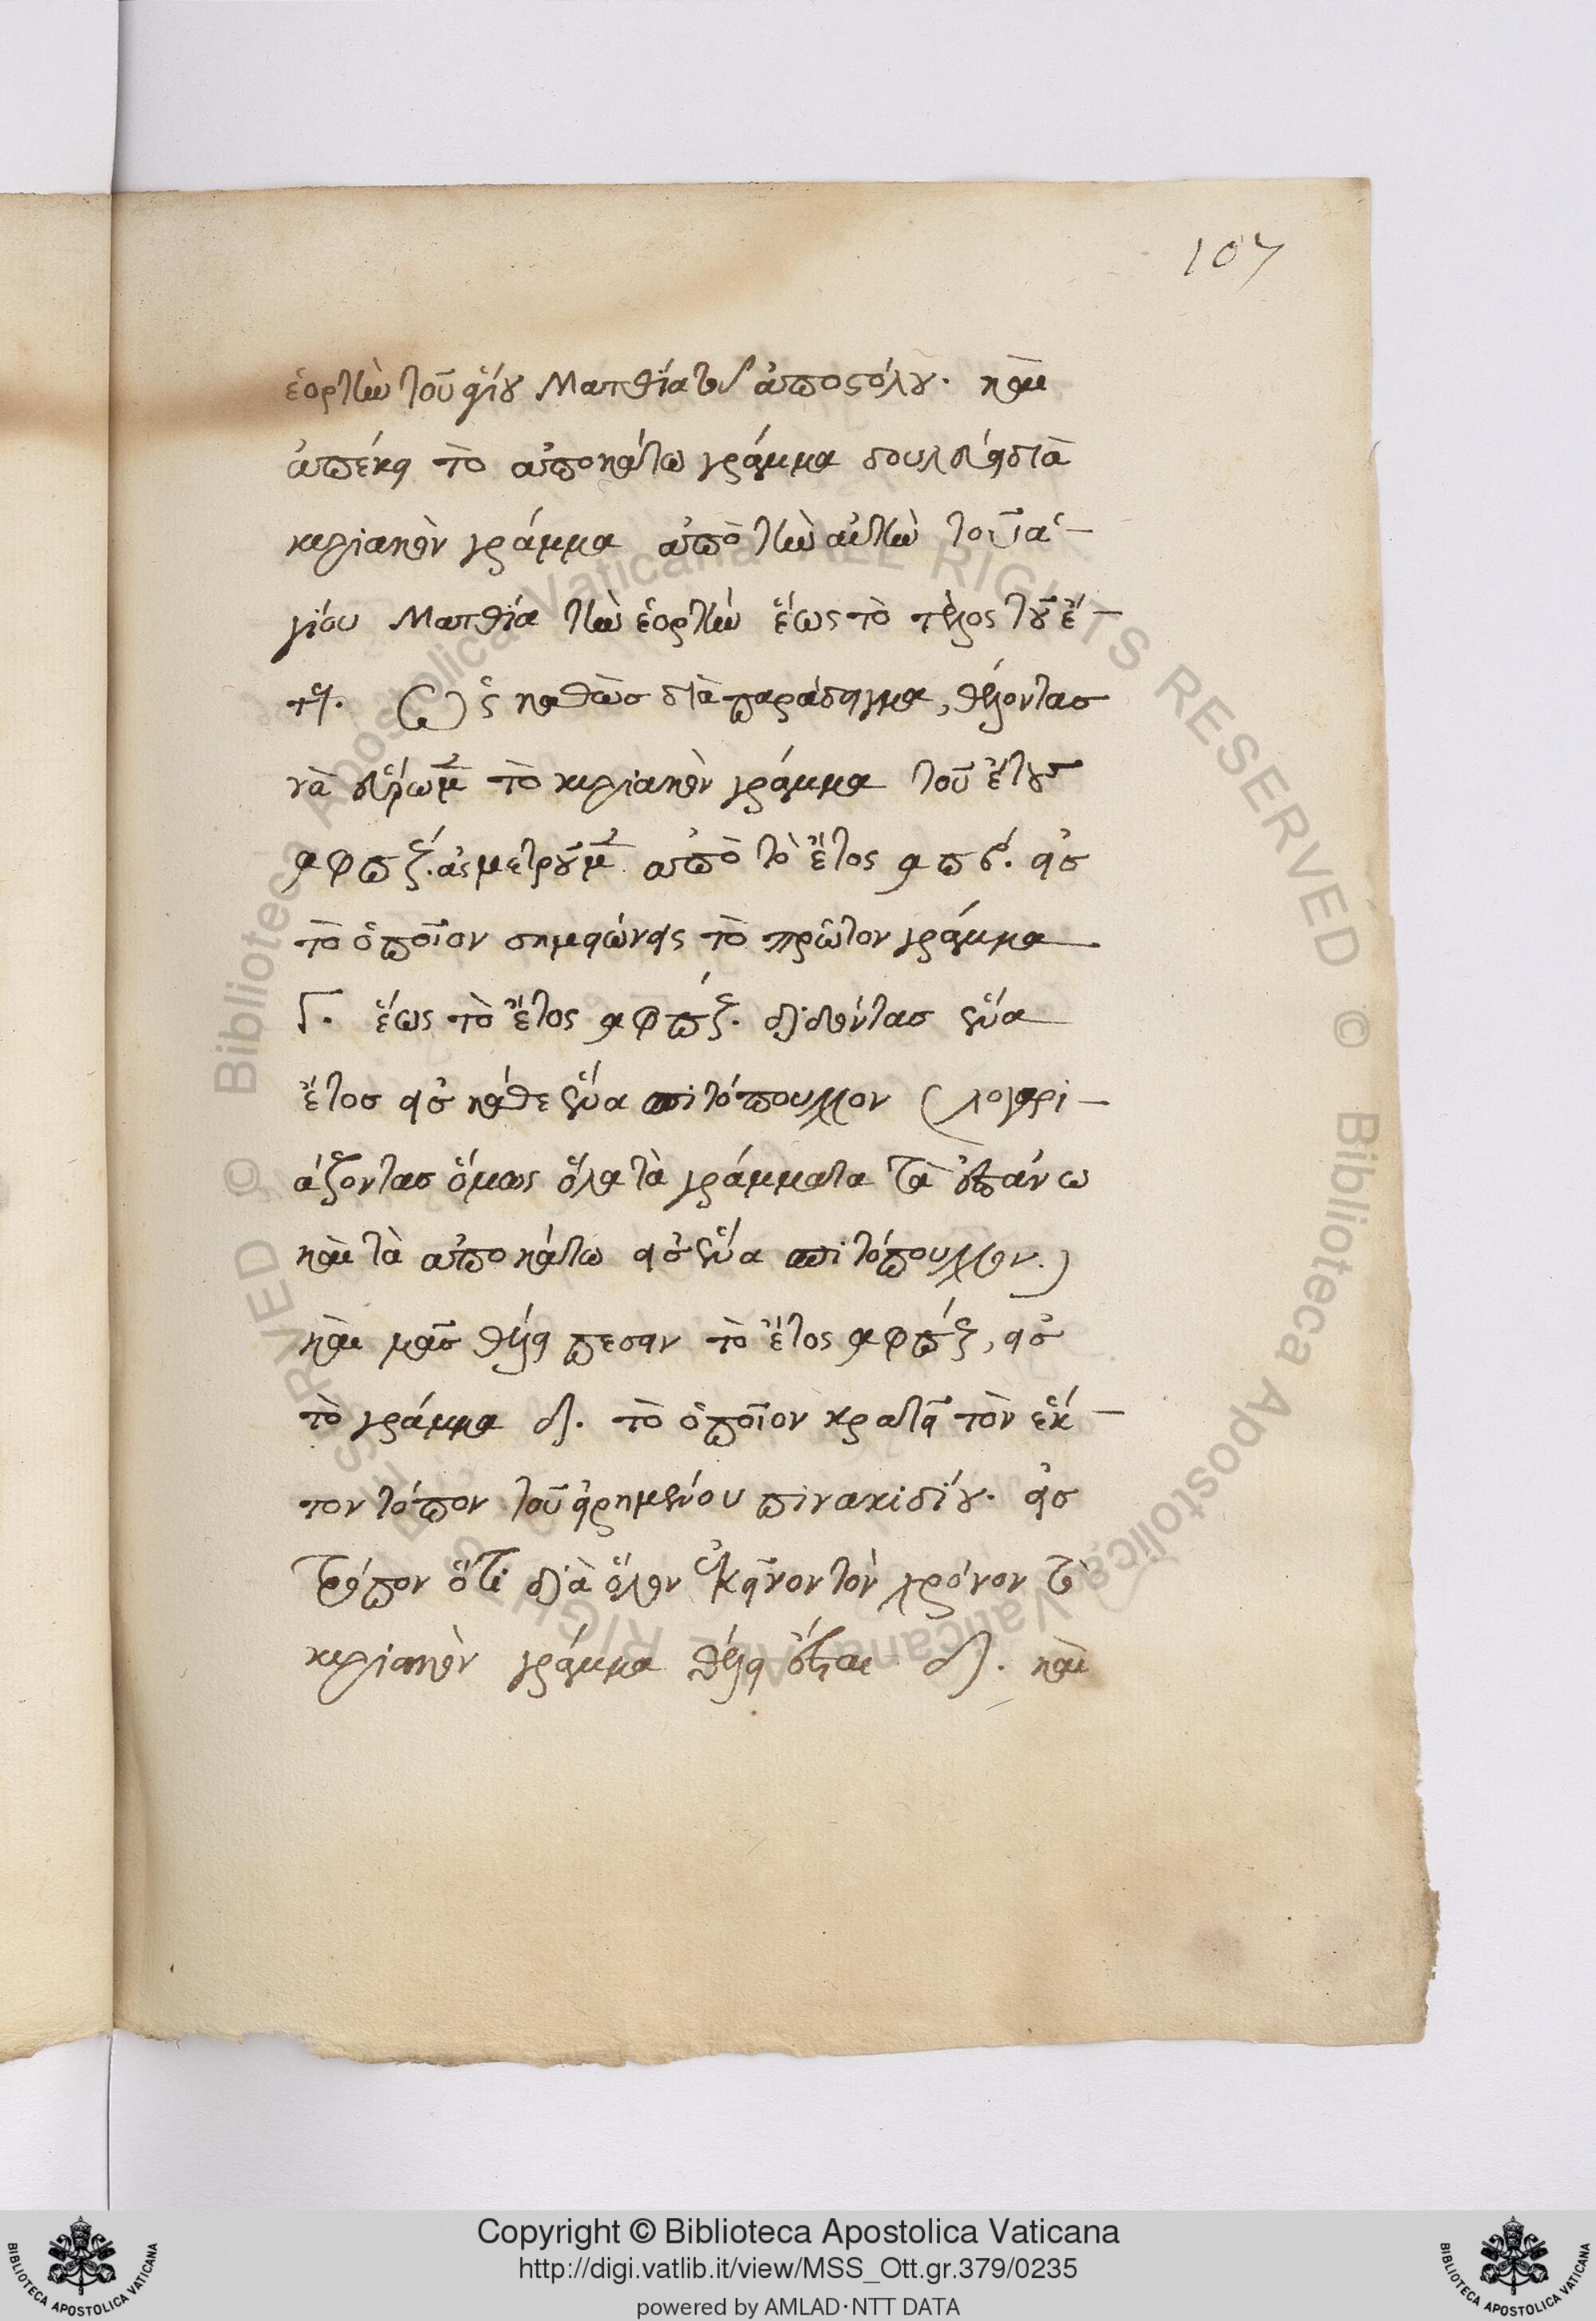 107
ἑορτὴν τοῦ ἁγίου Ματθία τοῦ ἀποστόλου. καὶ
ἀπέκει τὸ ἀποκάτω γράμμα δουλεύει διὰ
κυριακὸν γράμμα ἀπὸ τὴν αὐτὴν τοῦ ἁ-
γίου Ματθία τὴν ἑορτὴν ἕως τὸ τέλος τοῦ ἔ-
τους. Ὡς καθὼσ διὰ παράδειγμα, θέλοντασ
νὰ εὕρωμεν τὸ κυριακὸν γράμμα τοῦ ἔτουσ
αφπζ. ἂς μετροῦμεν ἀπὸ τὸ ἔτος αφπβ. εἰσ
τὸ ὁποῖον σημειώνεις τὸ πρῶτον γράμμα
Γ. ἕως τὸ ἔτος αφπζ. διδόντασ ἕνα
ἔτοσ εἰσ κάθε ἕνα σπιτόπουλλον (λογαρι-
άζοντασ ὅμως ὅλα τὰ γράμματα τὰ ἐπάνω
καὶ τὰ ἀποκάτω εἰσ ἕνα σπιτόπουλλον.)
καὶ μᾶσ θέλει πεσειν τὸ ἔτος αφπζ, εἰσ
τὸ γράμμα δ. τὸ ὁποῖον κρατεῖ τὸν ἕκ-
τον τόπον τοῦ εἰρημένου πινακιδίου. εἰσ
τρόπον ὅτι διὰ ὅλον ἐκεῖνον τὸν χρόνον τὸ
κυριακὸν γράμμα θέλει ἔσται δ. καὶ
Copyright © Biblioteca Apostolica Vaticana
http://digi.vatlib.it/view/MSS_Ott.gr.379/0235
powered by AMLAD·NTT DATA
BIBLIOTECA APOSTOLICA VATICANA
BIBLIOTECA APOSTOLICA VATICANA